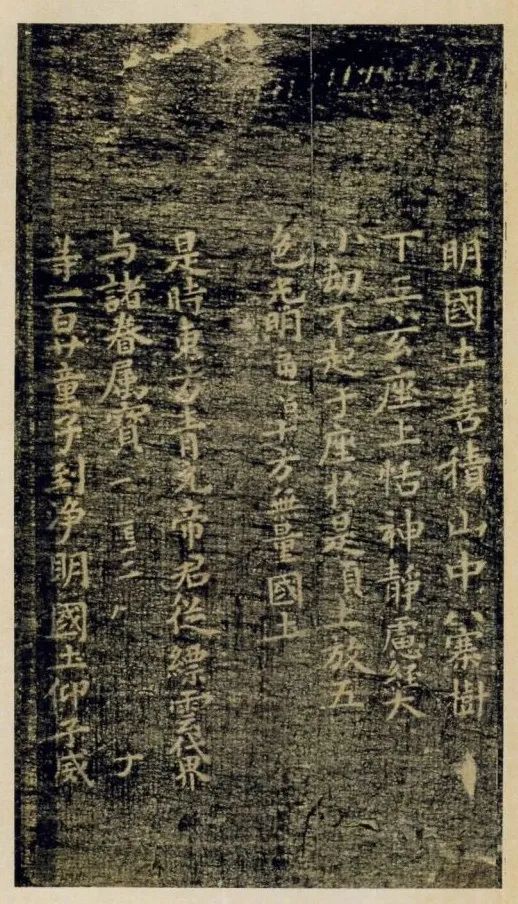 明國土善積山中八騫樹
下五玄座上恬神靜慮經大
小劫不起于座於是頂上放五
色光明晋百十方無量國土
是時東方青元帝君從縹雲代界
与諸眷属寶
等一百廿童子到净明國土仰子威